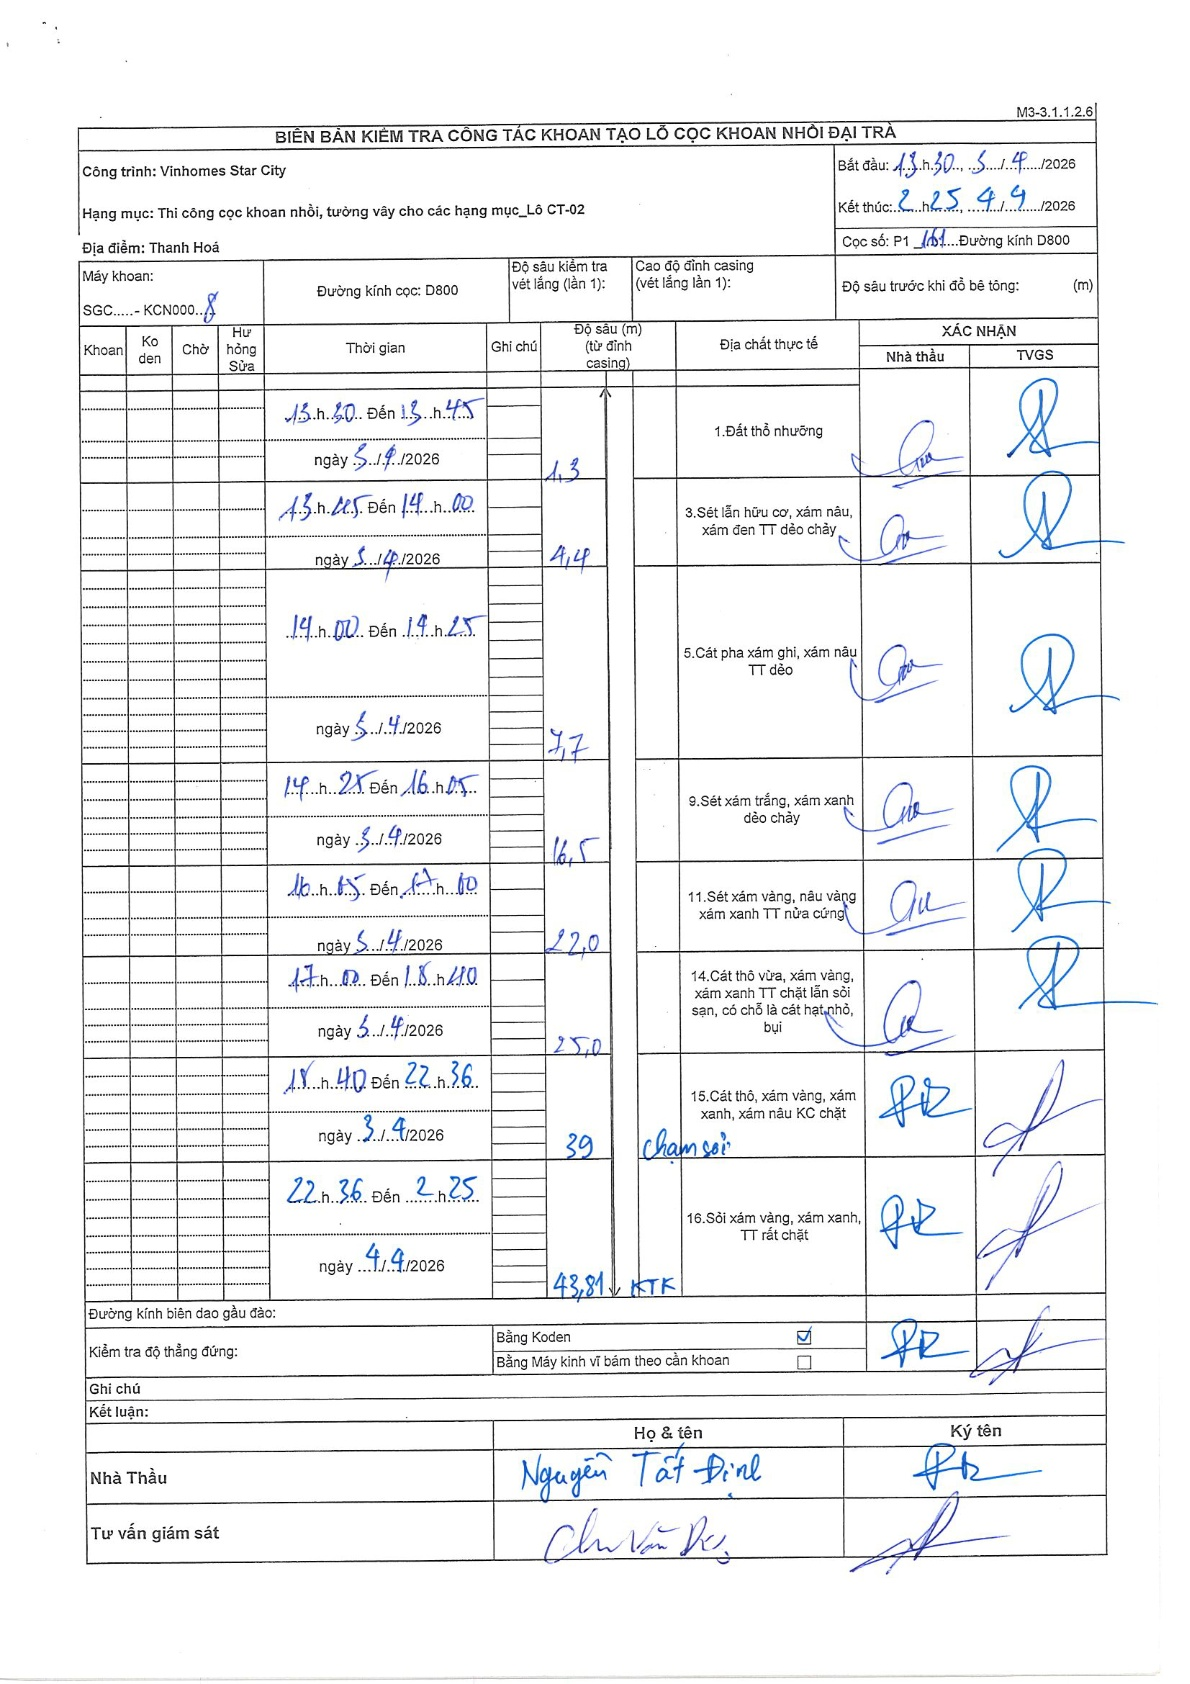 M3-3.1.1.2.6
BIÊN BẢN KIỂM TRA CÔNG TÁC KHOAN TẠO LỖ CỌC KHOAN NHỒI ĐẠI TRÀ
Công trình: Vinhomes Star City
Bắt đầu: 13.h.30.., ..3.../..4..../2026
Hạng mục: Thi công cọc khoan nhồi, tường vây cho các hạng mục_Lô CT-02
Kết thúc:..2..h.25., ..4../..4../2026
Địa điểm: Thanh Hoá
Cọc số: P1_161...Đường kính D800
Máy khoan:
SGC.....- KCN000..8
Đường kính cọc: D800
Độ sâu kiểm tra
vét lắng (lần 1):
Cao độ đỉnh casing
(vét lắng lần 1):
Độ sâu trước khi đổ bê tông: (m)
Khoan
Ko
đen
Chờ
Hư
hỏng
Sửa
Thời gian
Ghi chú
Độ sâu (m)
(từ đỉnh
casing)
Địa chất thực tế
XÁC NHẬN
Nhà thầu
TVGS
..13.h..30.. Đến 13...h.45
ngày .3../.4./2026
1,3
1.Đất thổ nhưỡng
13.h.45 Đến 14...h..00
ngày 3.../4./2026
4,4
3.Sét lẫn hữu cơ, xám nâu,
xám đen TT dẻo chảy
..14.h.00.. Đến .14.h.25.
ngày .3../.4./2026
7,7
5.Cát pha xám ghi, xám nâu
TT dẻo
14..h..25 Đến .16.h05..
ngày ..3../.4./2026
16,5
9.Sét xám trắng, xám xanh
dẻo chảy
16.h..05. Đến.17...h..00
ngày 3.../4./2026
22,0
11.Sét xám vàng, nâu vàng
xám xanh TT nửa cứng
17.h..00. Đến 18..h40
ngày 3.../.4./2026
25,0
14.Cát thô vừa, xám vàng,
xám xanh TT chặt lẫn sỏi
sạn, có chỗ là cát hạt nhỏ,
bụi
18...h..40 Đến 22.h.36..
ngày ..3./..4/2026
39
Chạm sỏi
15.Cát thô, xám vàng, xám
xanh, xám nâu KC chặt
22.h..36. Đến ..2..h.25.
ngày ...4./.4./2026
43,81
KTK
16.Sỏi xám vàng, xám xanh,
TT rất chặt
Đường kính biên dao gầu đào:
Kiểm tra độ thẳng đứng:
Bằng Koden ☑
Bằng Máy kinh vĩ bám theo cần khoan ☐
Ghi chú
Kết luận:
Họ & tên
Ký tên
Nhà Thầu
Nguyễn Tất Định
Tư vấn giám sát
Chu Văn